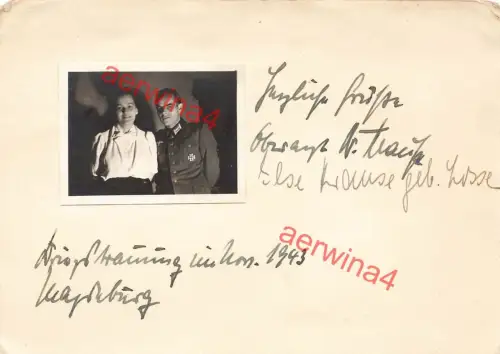 Herzliche Grüße
Oberarzt W. Krause
Else Krause geb. Losse
Kriegstrauung im Nov. 1943
Magdeburg
aerwina4
aerwina4